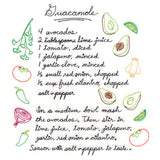 Guacamole
4 avocados
2 tablespoons lime juice
1 tomato, diced
1 jalapeno, minced
1 garlic clove, minced
½ small red onion, chopped
½ tablespoon cilantro, chopped
salt + pepper
In a medium bowl mash
the avocados. Then stir in
lime juice, tomato, jalapeno,
garlic, red onion + cilantro.
Season with salt + pepper to taste!